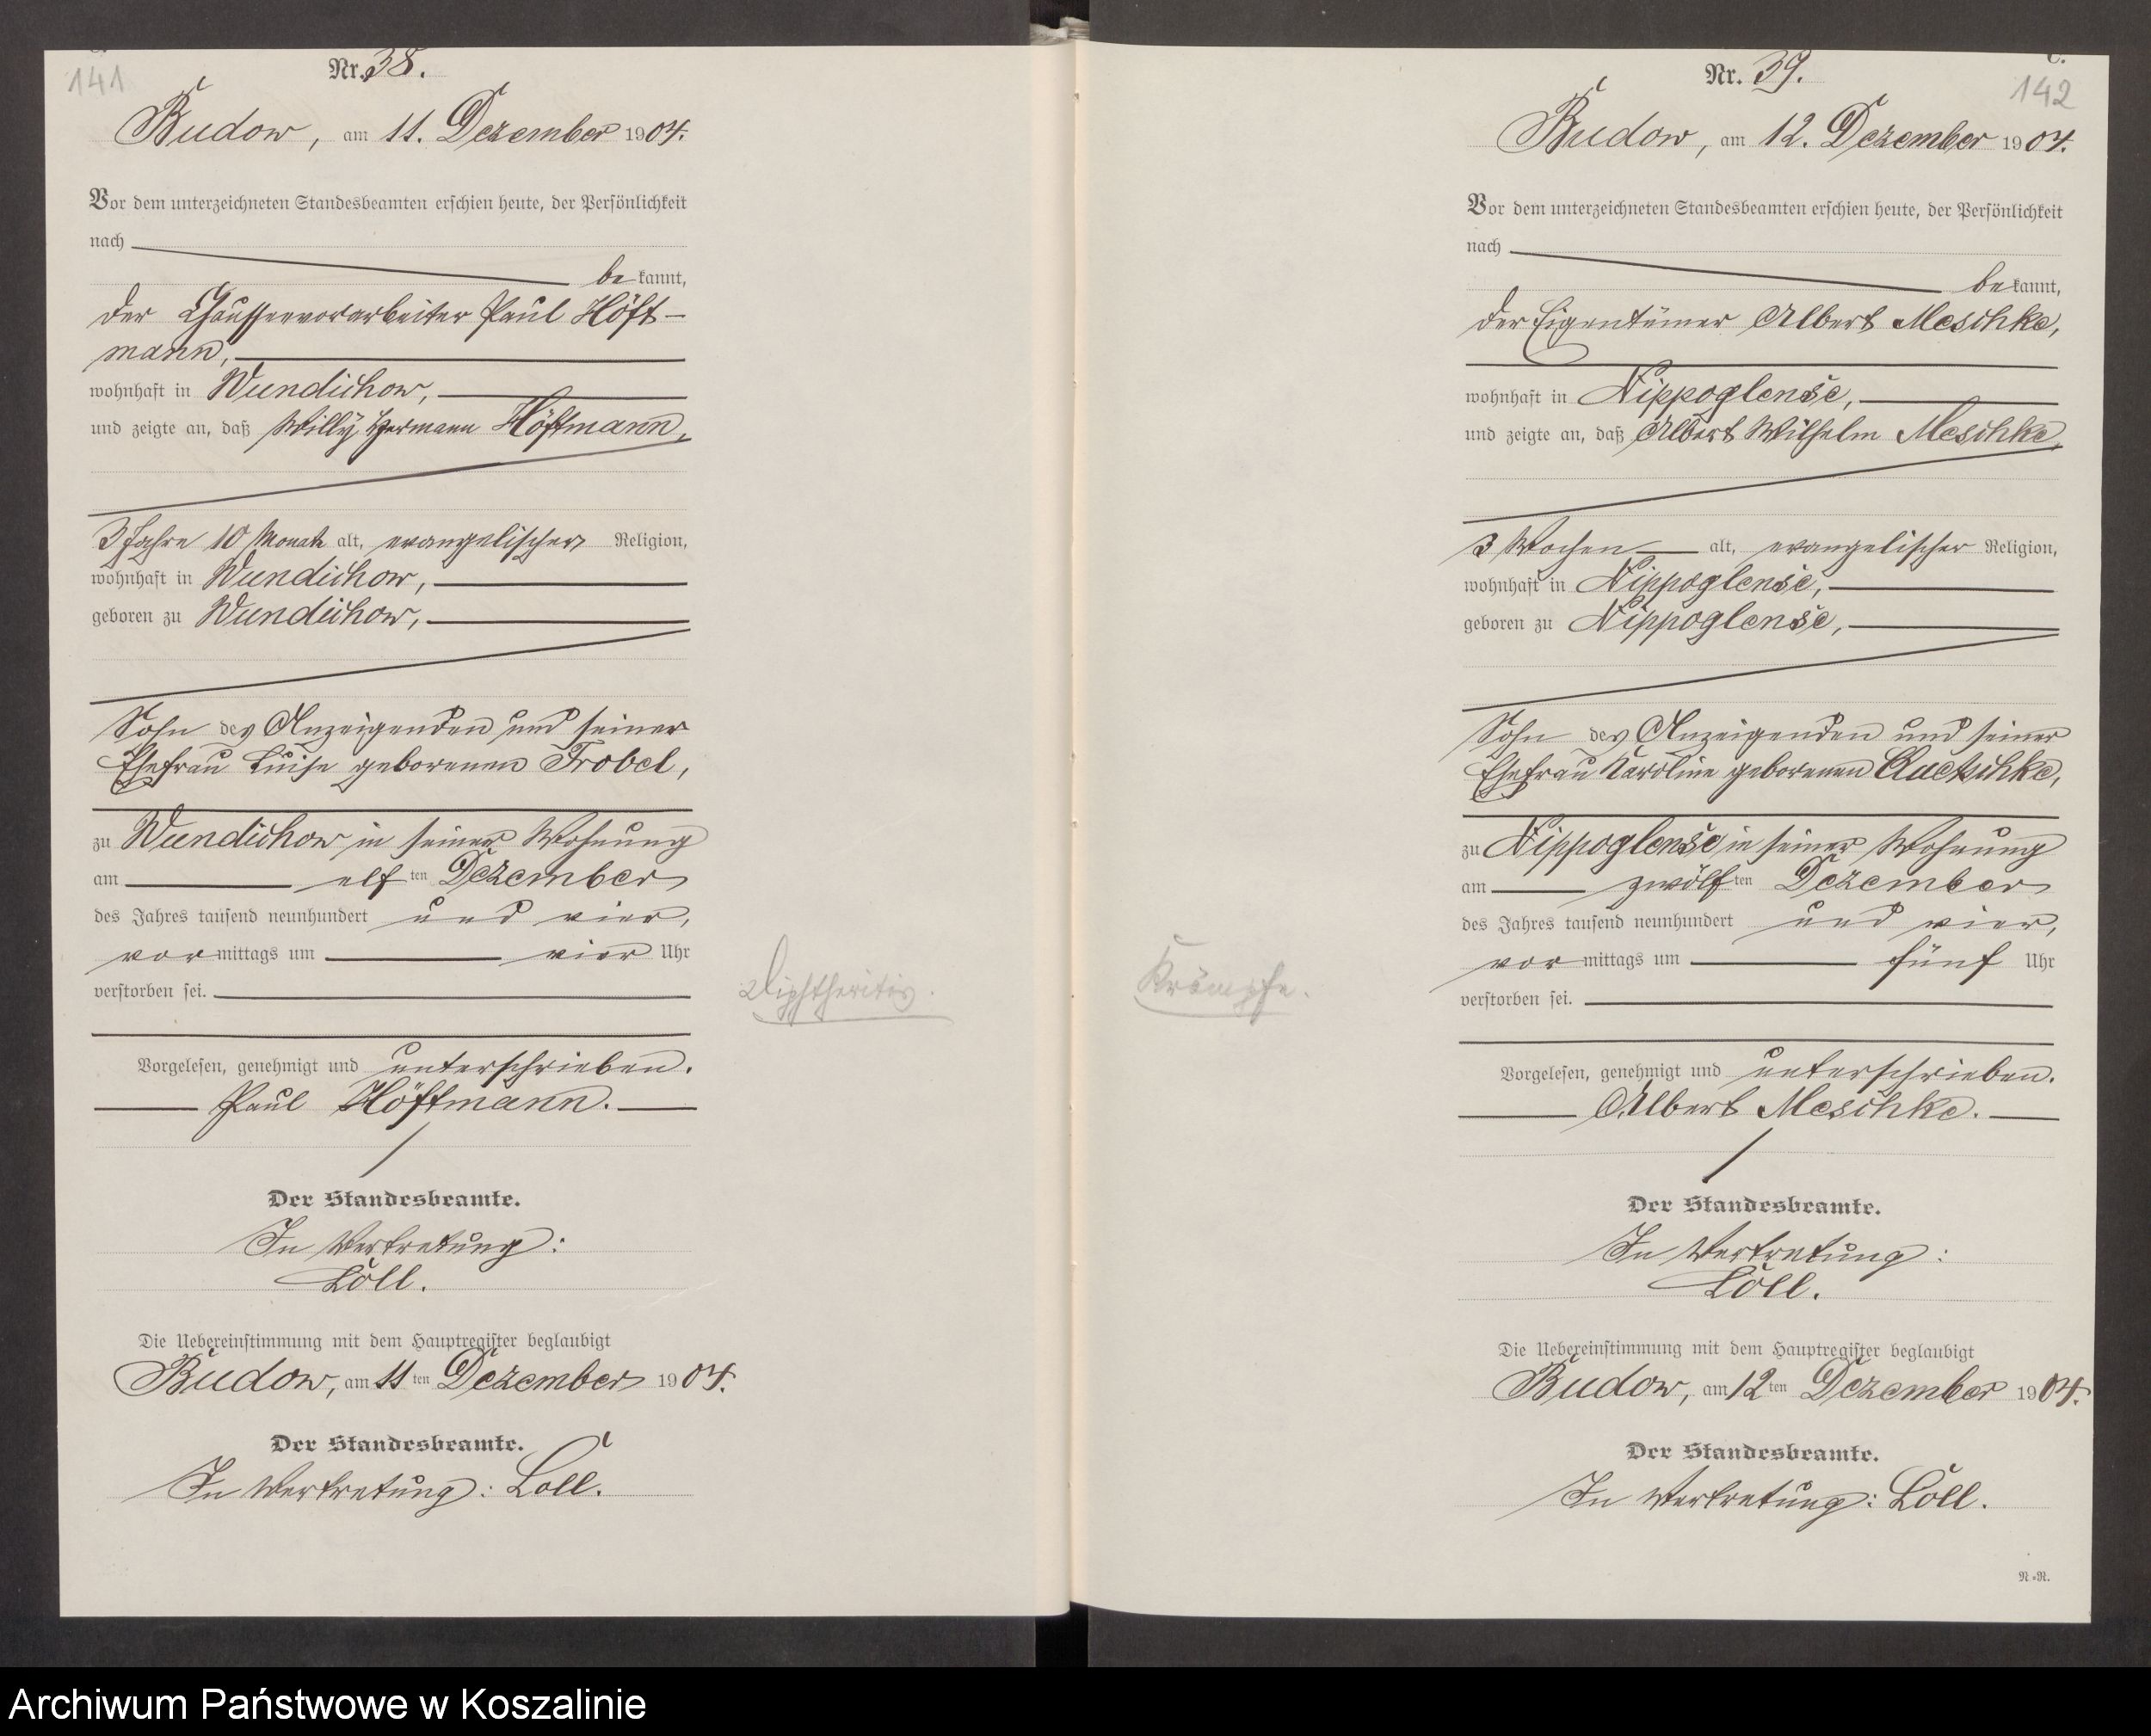 141
Nr. 38.
Budow, am 11. Dezember 1904.
Vor dem unterzeichneten Standesbeamten erschien heute, der Persönlichkeit
nach
bekannt,
der Chausseevorarbeiter Paul Höft-
mann,
wohnhaft in Wundichow,
und zeigte an, daß Willy Hermann Höftmann,
3 Jahre 10 Monate alt, evangelischer Religion,
wohnhaft in Wundichow,
geboren zu Wundichow,
Sohn des Anzeigenden und seiner
Ehefrau Luise geborenen Trobel,
zu Wundichow in seiner Wohnung
am elften Dezember
des Jahres tausend neunhundert und vier,
vormittags um vier Uhr
verstorben sei.
Diphtheritis.
Vorgelesen, genehmigt und unterschrieben.
Paul Höftmann.
Der Standesbeamte.
In Vertretung:
Löll.
Die Uebereinstimmung mit dem Hauptregister beglaubigt
Budow, am 11ten Dezember 1904.
Der Standesbeamte.
In Vertretung: Löll.
C.
142
Nr. 39.
Budow, am 12. Dezember 1904.
Vor dem unterzeichneten Standesbeamten erschien heute, der Persönlichkeit
nach
bekannt,
der Eigentümer Albert Meschke,
wohnhaft in Nippoglense,
und zeigte an, daß Albert Wilhelm Meschke,
3 Wochen alt, evangelischer Religion,
wohnhaft in Nippoglense,
geboren zu Nippoglense,
Sohn des Anzeigenden und seiner
Ehefrau Karoline geborenen Quetschke,
zu Nippoglense in seiner Wohnung
am zwölften Dezember
des Jahres tausend neunhundert und vier,
vormittags um fünf Uhr
verstorben sei.
Krämpfe.
Vorgelesen, genehmigt und unterschrieben.
Albert Meschke.
Der Standesbeamte.
In Vertretung:
Löll.
Die Uebereinstimmung mit dem Hauptregister beglaubigt
Budow, am 12ten Dezember 1904.
Der Standesbeamte.
In Vertretung: Löll.
N.=R.
Archiwum Państwowe w Koszalinie